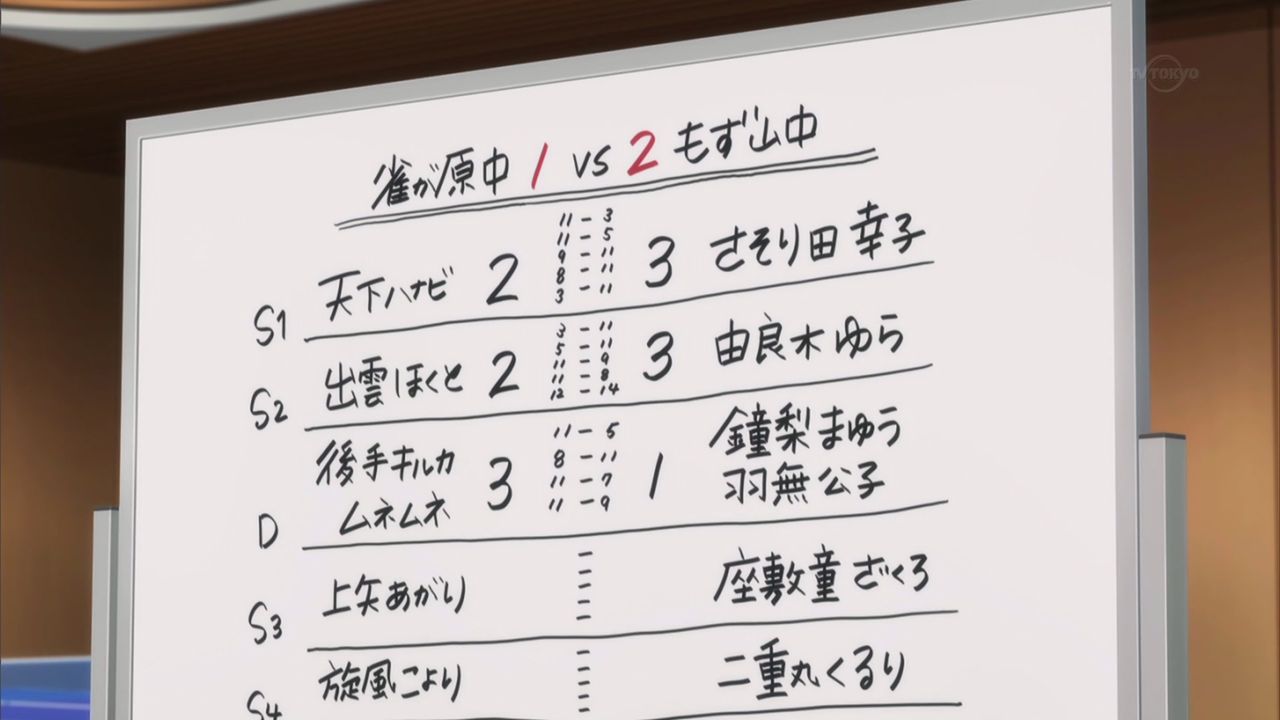 TV TOKYO
雀が原中 1 VS 2 もず山中
S1 天下ハナビ 2 11-3 3 さそり田 幸子
11-5
9-11
8-11
3-11
S2 出雲ほくと 2 3-11 3 由良木ゆら
5-11
11-9
11-8
12-14
D 後手キルカ 3 11-5 1 鐘梨まゆう
ムネムネ 8-11 羽無公子
11-7
11-9
S3 上矢あがり 座敷童ざくろ
S4 旋風こより 二重丸くるり